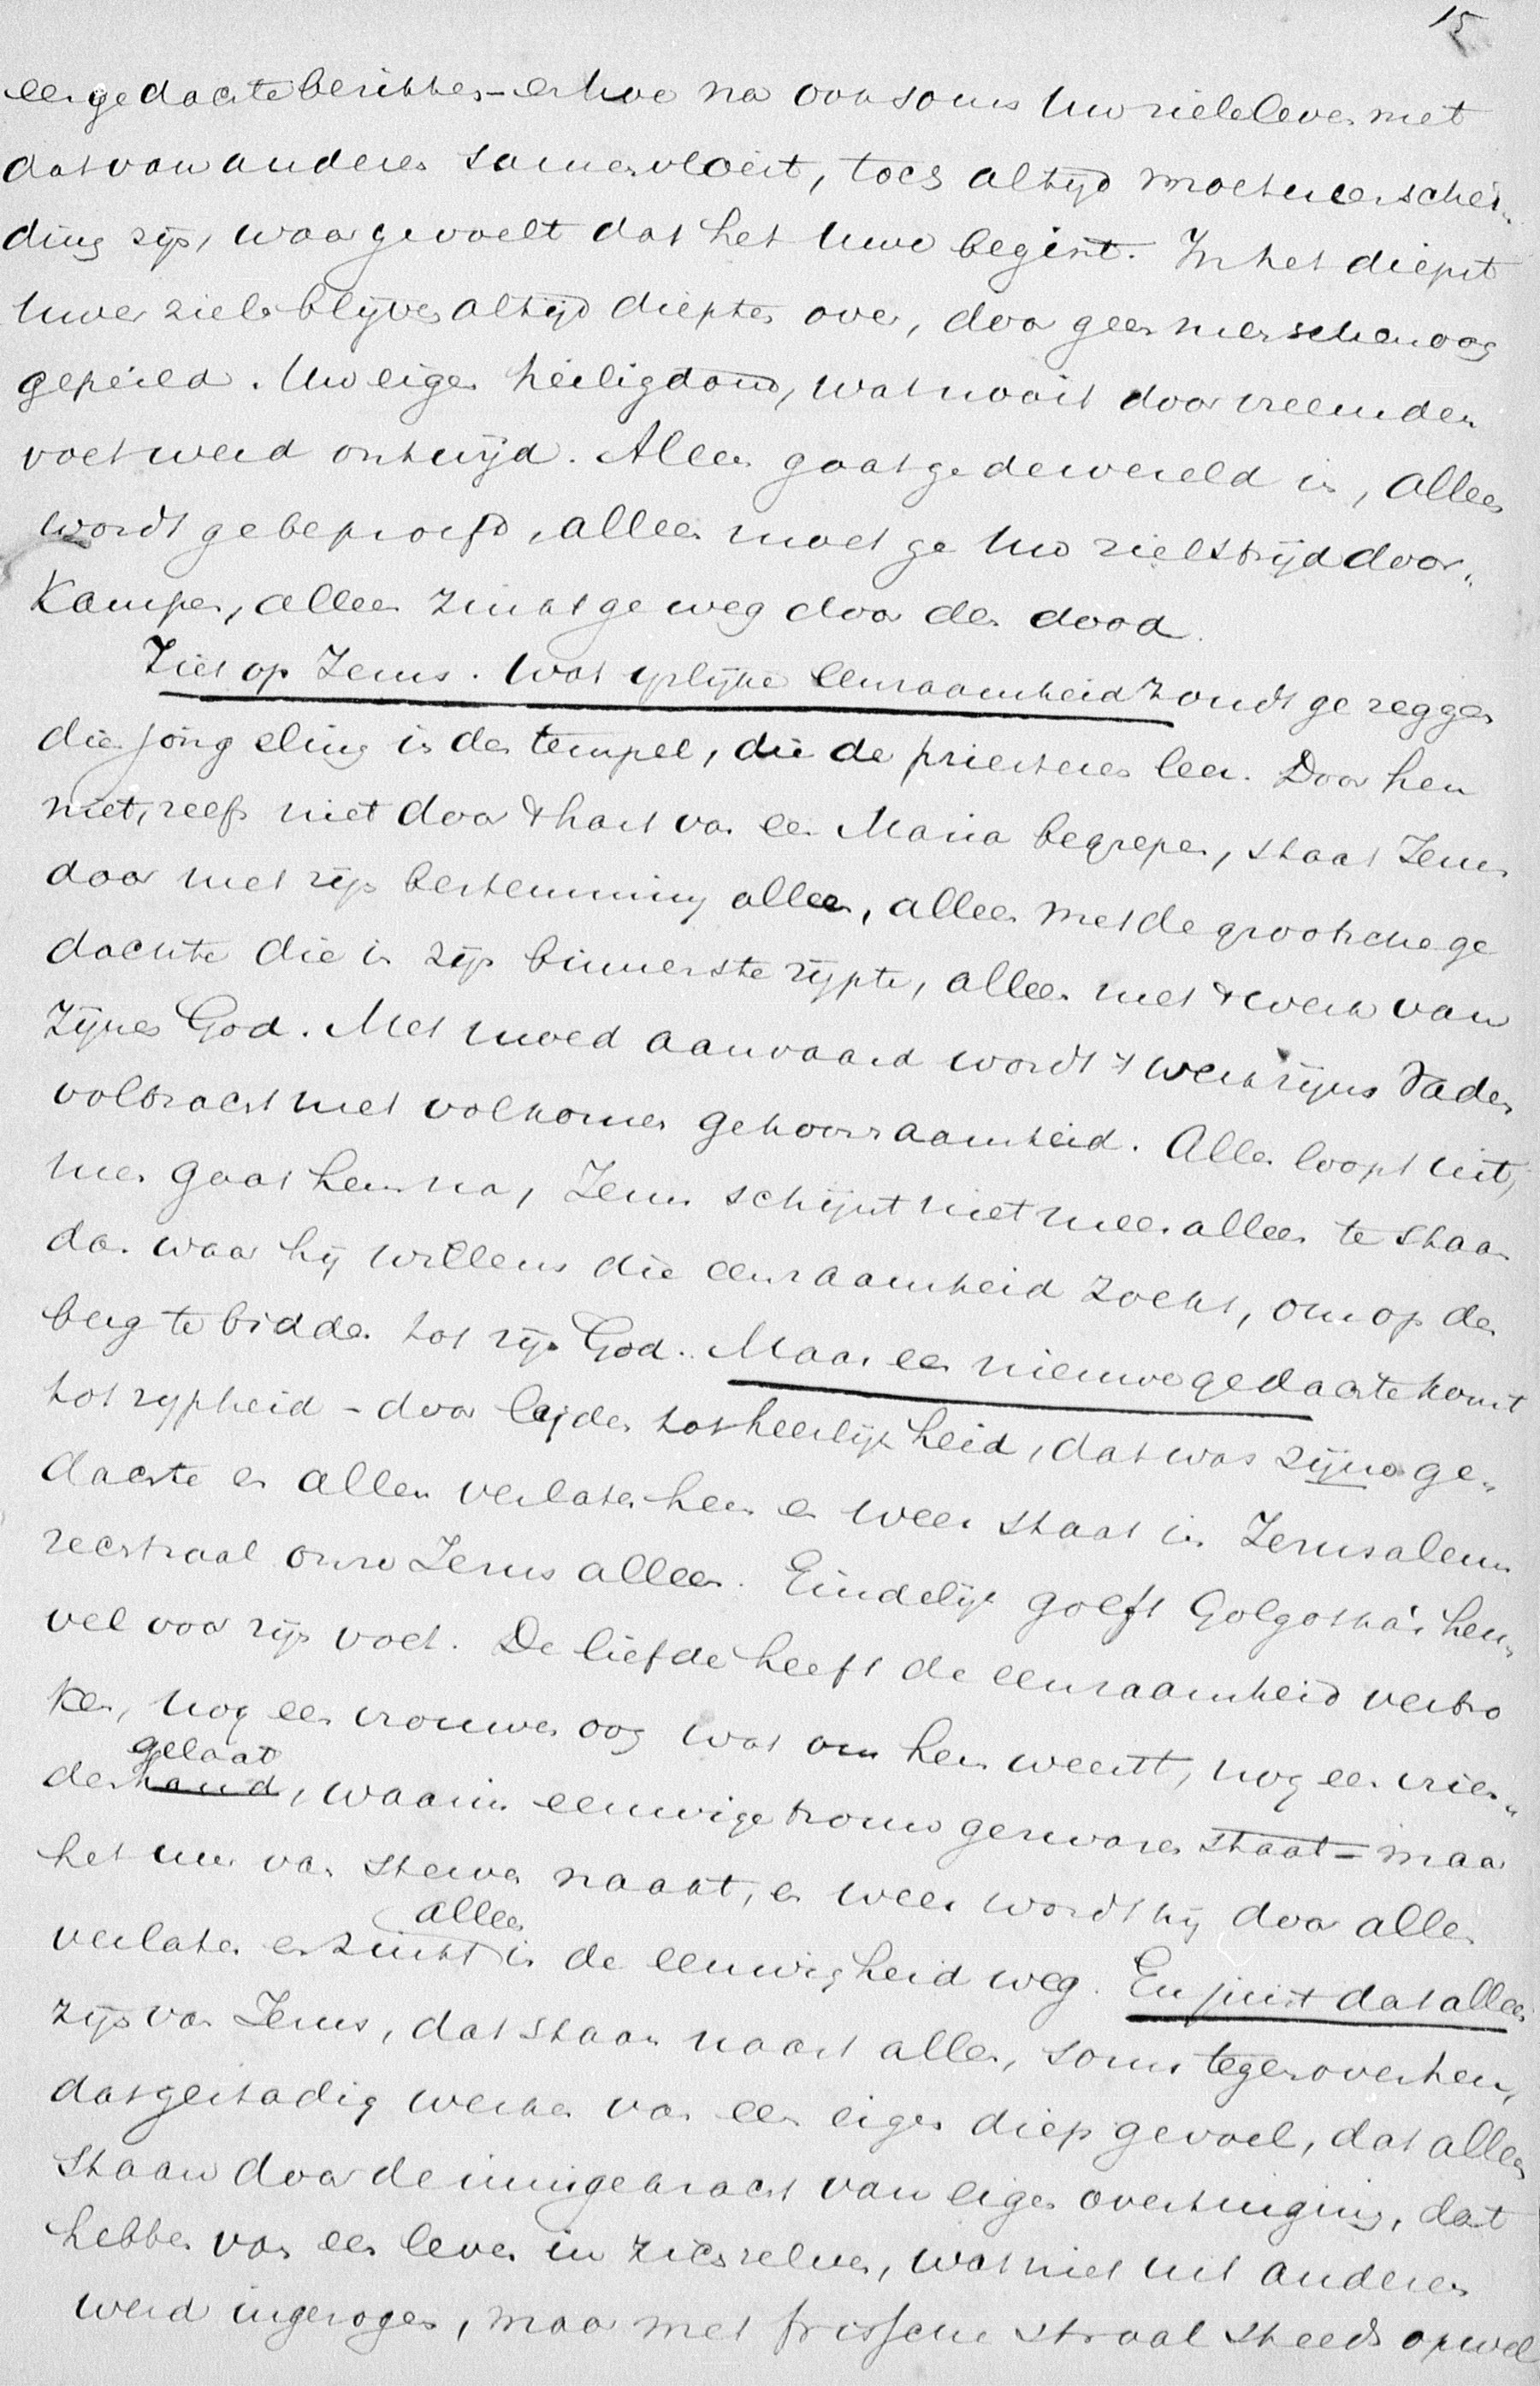 15
een gedachte berichten - en hoe na ook soms Uw zieleleven met
dat van anderen samenvloeit, toch altijd moet er een schei„
ding zijn, waar ge voelt dat het Uwe begint. In het diepst
Uwer ziele blijven altijd diepten over, door geen menschenoog
gepeild. Uw eigen heiligdom, wat nooit door vreemden
voet werd ontwijd. Alleen gaat ge de wereld in, alleen
wordt ge beproefd, alleen moet ge Uw zielstrijd door„
Kampen, alleen zinkt ge weg door den dood.
Ziet op Jezus. Wat ijslijke eenzaamheid zoudt ge zeggen
die jongeling in den tempel, die de priesteren leer. Door hen
niet, zelfs niet door 't hart van een Maria begrepen, staat Jezus
daar met zijn bestemming alleen, alleen met de grootsche ge
dachte die in zijn binnenste rijpte, alleen met 't werk van
Zijnen God. Met moed aanvaard wordt 't werk zijns Vaders
volbracht met volkomen gehoorzaamheid. Allen loopt uit,
men gaat hem na, Jezus schijnt niet meer alleen te staan
dan waar hij willens die eenzaamheid zocht, om op den
berg te bidden tot zijn God. Maar een nieuwe gedachte komt
tot rypheid - door lijden tot heerlijkheid, dat was zijne ge„
dachte en allen verlaten hem en weer staat in Jerusalems
rechtzaal onze Jezus alleen. Eindelijk golft Golgotha's heu„
vel voor zijn voet. De liefde heeft de eenzaamheid verbro
ken, nog een vrouwenoog wat om hem weent, nog een vrien„
gelaat
den hand, waarin eeuwige trouw geschreven staat - maar
het uur van sterven naakt, en weer wordt hij door allen
alleen
verlaten en zinkt in de eeuwigheid weg. En juist dat alleen
zijn van Jezus, dat staan naast allen, soms tegenover hen,
dat gestadig werken van een eigen diep gevoel, dat alleen
staan door de innige kracht van eigen overtuiging, dat
hebben van een leven in zich zelven, wat niet uit anderen
werd ingezogen, maar met frissche straal steeds opwel